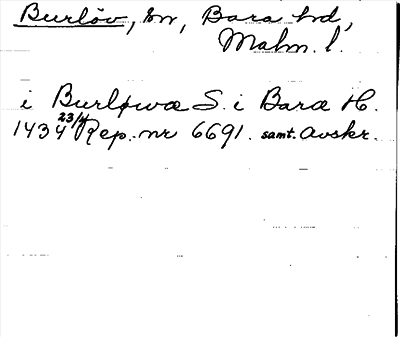 Burlöv, sn, Bara hd,
Malm. l.
i Burløwæ S. i Baræ H.
1434 23/4 Rep. nr 6691. samt. Avskr.